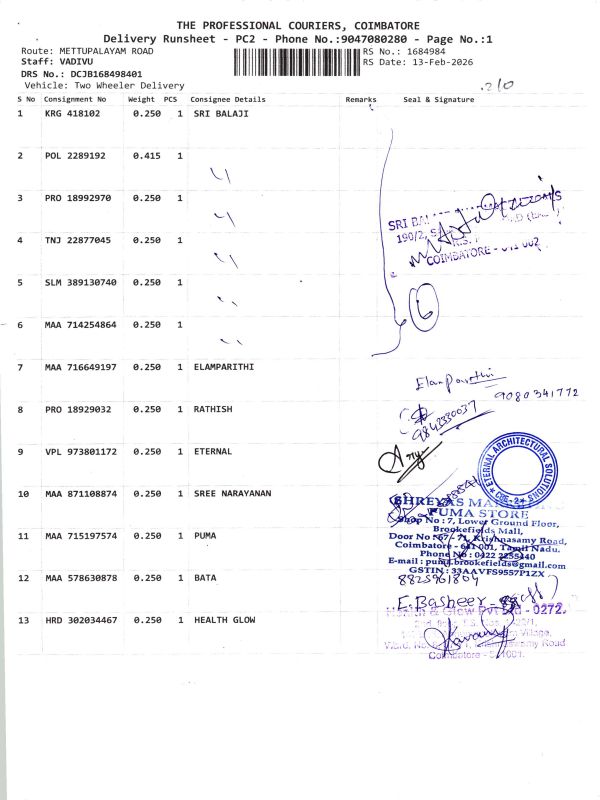 THE PROFESSIONAL COURIERS, COIMBATORE
Delivery Runsheet - PC2 - Phone No.:9047080280 - Page No.:1
Route: METTUPALAYAM ROAD
RS No.: 1684984
Staff: VADIVU
RS Date: 13-Feb-2026
DRS No.: DCJB168498401
Vehicle: Two Wheeler Delivery
S No Consignment No Weight PCS Consignee Details Remarks Seal & Signature
1 KRG 418102 0.250 1 SRI BALAJI
2 POL 2289192 0.415 1
3 PRO 18992970 0.250 1
4 TNJ 22877045 0.250 1
5 SLM 389130740 0.250 1
6 MAA 714254864 0.250 1
SRI
190/2,
COIMBATORE -
6
7 MAA 716649197 0.250 1 ELAMPARITHI
Elamparithi
9080341772
8 PRO 18929032 0.250 1 RATHISH
9842330037
9 VPL 973801172 0.250 1 ETERNAL
ETERNAL ARCHITECTURAL SOLUTIONS
10 MAA 871108874 0.250 1 SREE NARAYANAN
11 MAA 715197574 0.250 1 PUMA
PUMA STORE
Shop No : 7, Lower Ground Floor,
Brookefields Mall,
Door No : 67 - 71, Krishnasamy Road,
Coimbatore - 641 001, Tamil Nadu.
Phone No : 0422 2255440
E-mail : puma.brookefields@gmail.com
GSTIN : 33AAVFS9557P1ZX
12 MAA 578630878 0.250 1 BATA
8825961804
E. Basheer
13 HRD 302034467 0.250 1 HEALTH GLOW
& Glow Pvt Ltd - 0272.
Village,
Road
Coimbatore -